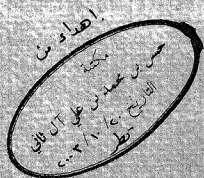 إهداء من
مكتبة
حسن بن محمد بن علي آل ثاني
التاريخ ٢٠٠٣/١٠/٢٠
قطر